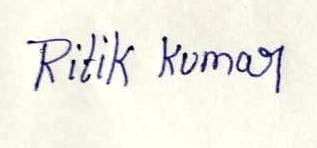 Ritik Kumar